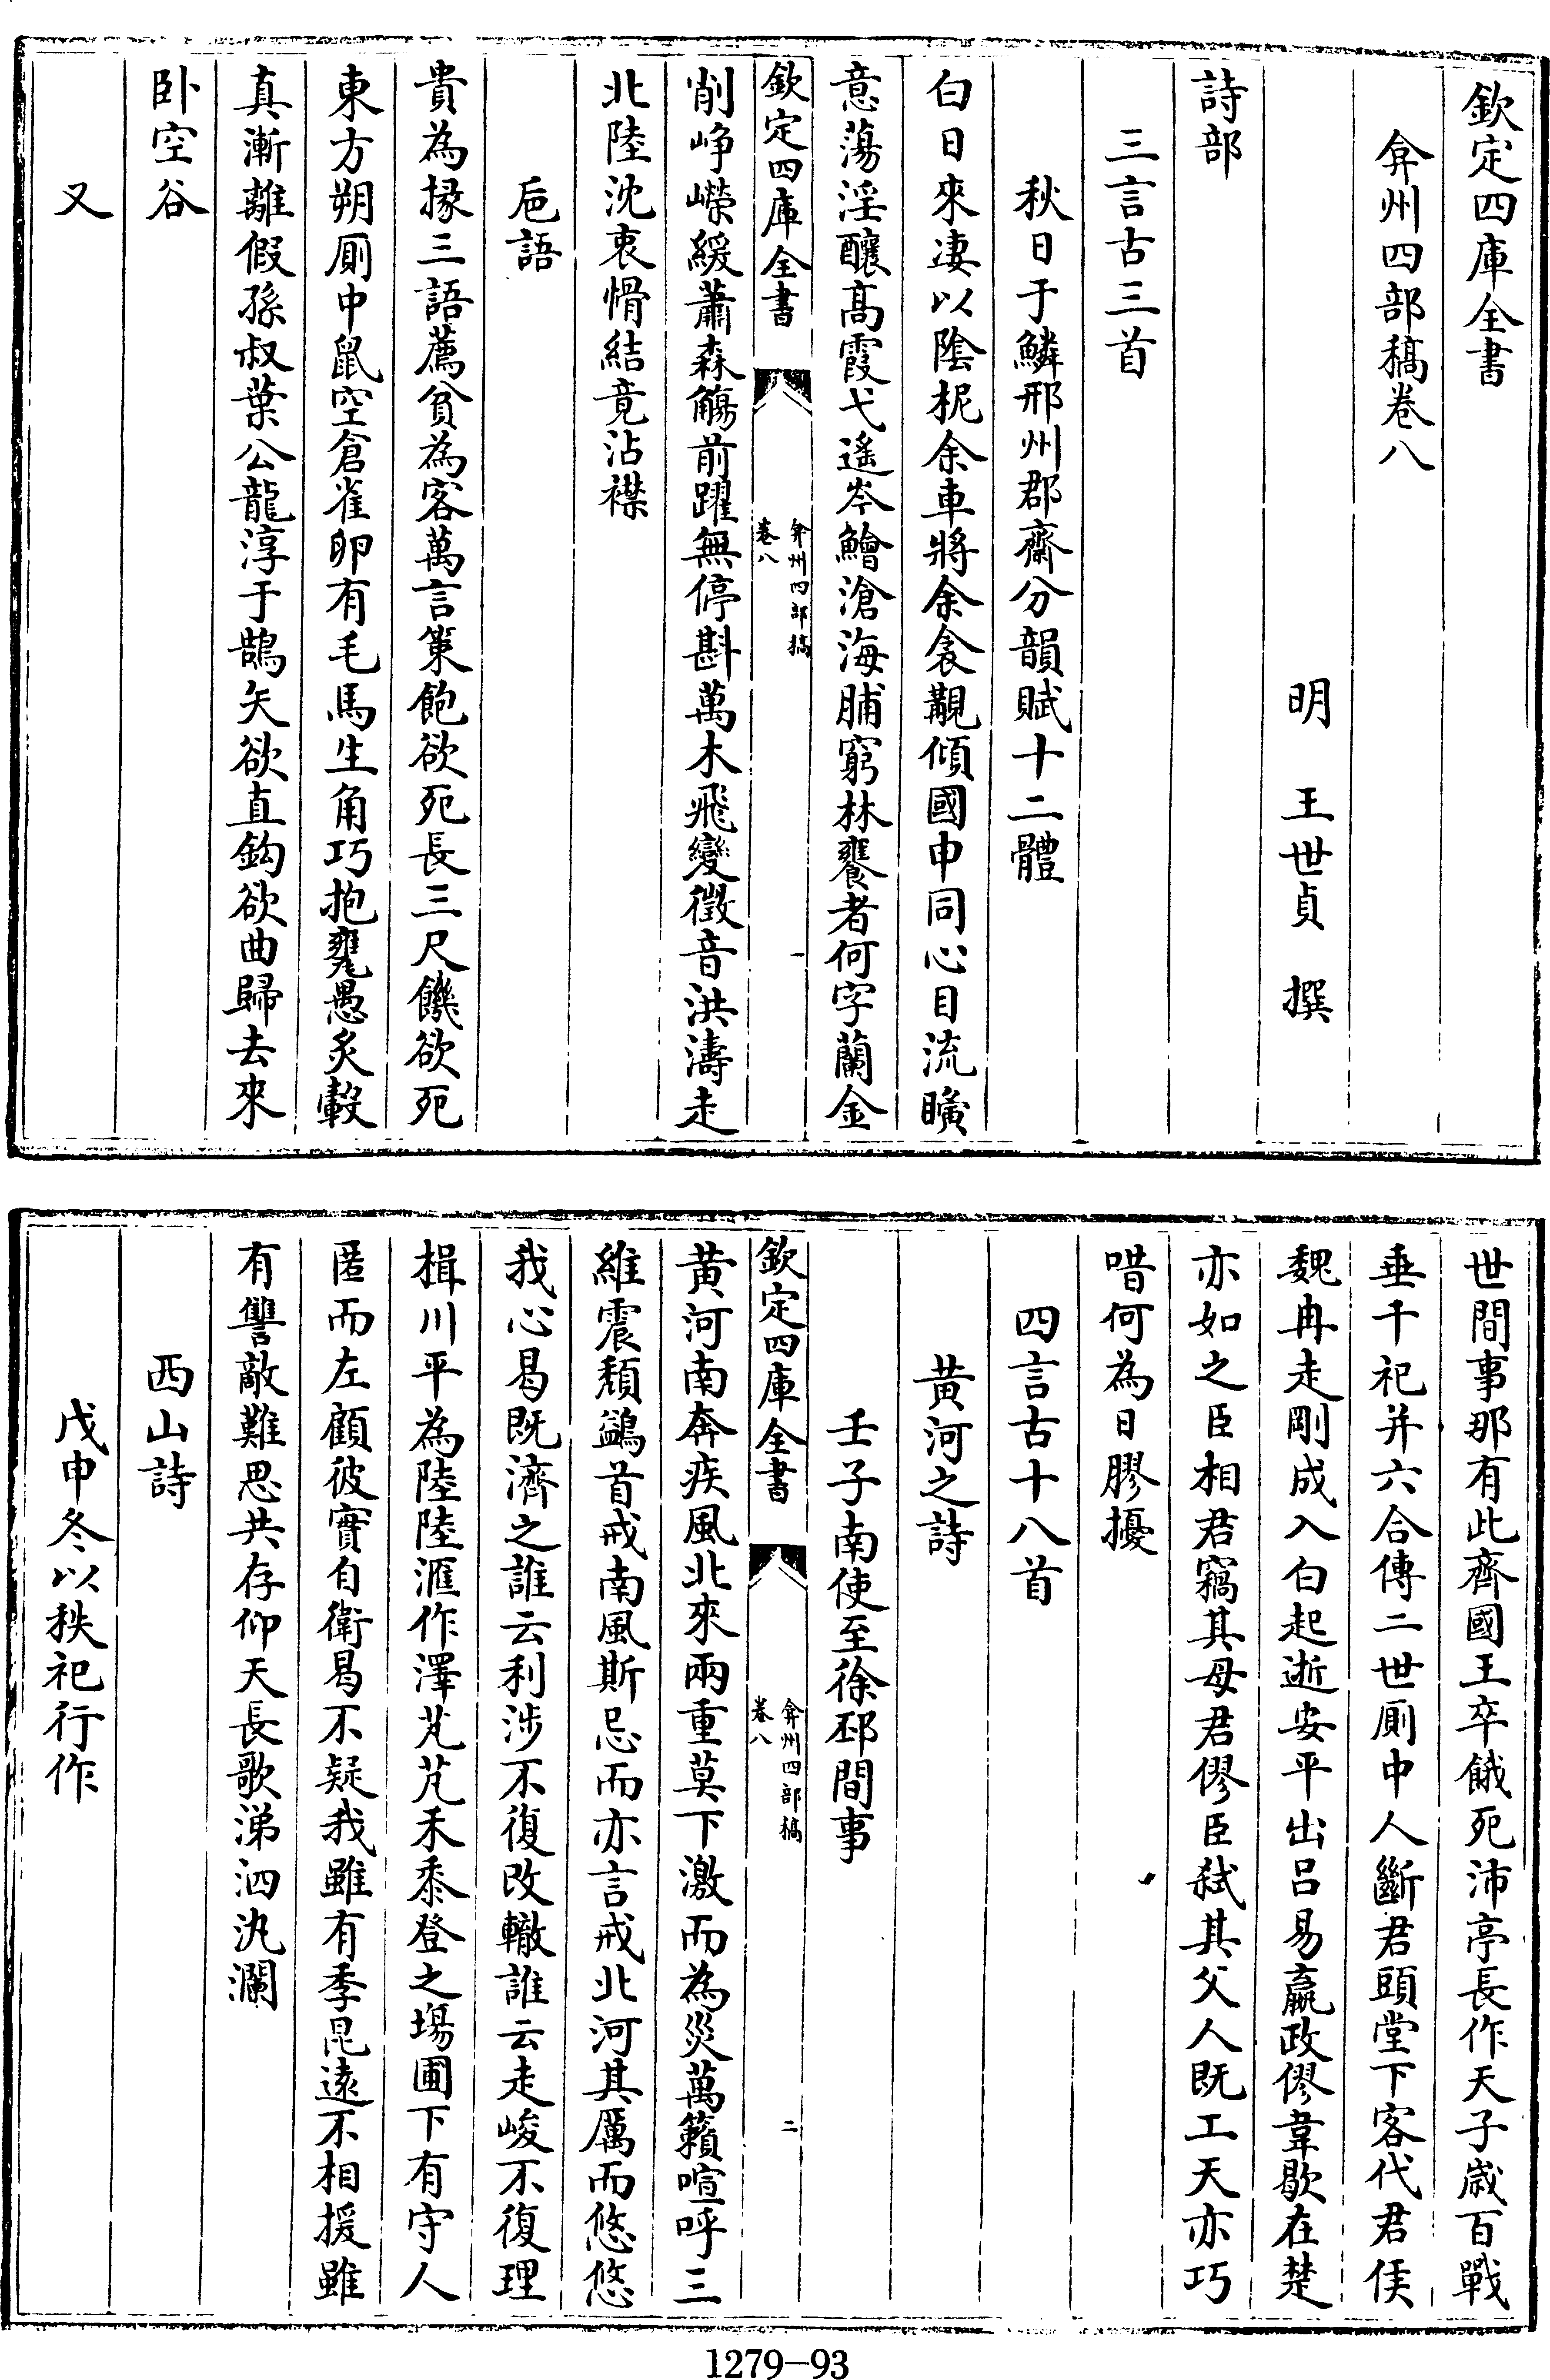 欽定四庫全書
弇州四部稿卷八
明　王世貞　撰
詩部
三言古三首
秋日于鱗邢州郡齋分韻賦十二體
白日來凄以陰柅余車將余衾覯傾國申同心目流曠
意蕩淫釀高霞弋遙岑鱠滄海脯窮林饔者何字蘭金
欽定四庫全書
弇州四部稿
卷八
一
削崢嶸緩蕭森觴前躍無停斟萬木飛變徵音洪濤走
北陸沈衷愲結竟沾襟
巵語
貴為掾三語薦貧為客萬言策飽欲死長三尺饑欲死
東方朔厠中鼠空倉雀卵有毛馬生角巧抱甕愚炙轂
真漸離假孫叔葉公龍淳于鵠矢欲直鈎欲曲歸去來
卧空谷
又
世間事那有此齊國王卒餓死沛亭長作天子歲百戰
垂千祀并六合傳二世厠中人斷君頭堂下客代君侯
魏冉走剛成入白起逝安平出呂易嬴政僇韋歇在楚
亦如之臣相君竊其母君僇臣弑其父人既工天亦巧
唶何為日膠擾
四言古十八首
黃河之詩
壬子南使至徐邳間事
欽定四庫全書
弇州四部稿
卷八
二
黃河南南奔疾風北來兩重莫下激而為災萬籟喧呼三
維震頽鷁首戒南風斯忌而亦言戒北河其厲而悠悠
我心曷既濟之誰云利涉不復改轍誰云走峻不復理
楫川平為陸陸滙作澤芃芃禾黍登之場圃下有守人
匿而左顧彼實自衛曷不疑我雖有季昆遠不相援雖
有讐敵難思共存仰天長歌涕泗汍瀾
西山詩
戊申冬以秩祀行作
1279-93